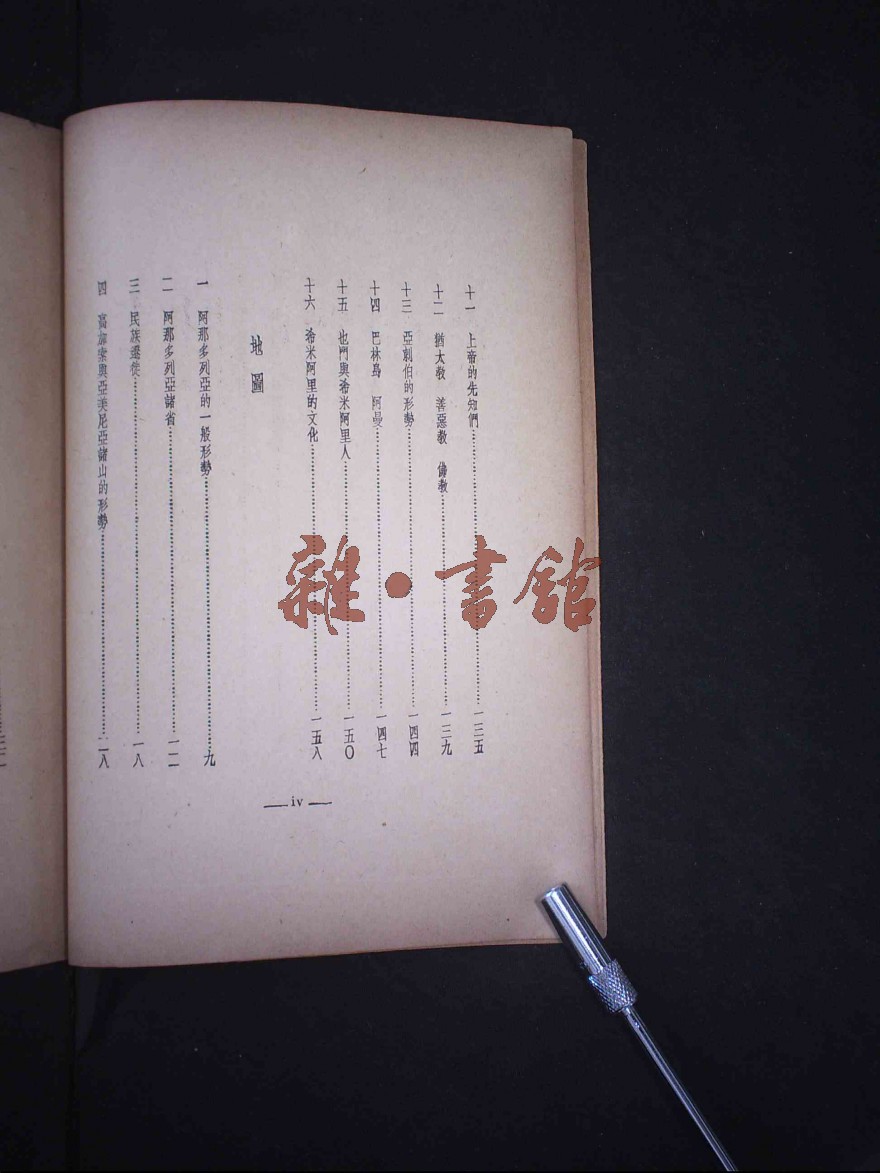 十一 上帝的先知們……一三五
十二 猶太教 善惡教 佛教……一三九
十三 亞剌伯的形勢……一四四
十四 巴林島 阿曼……一四七
十五 也門與希米阿里人……一五〇
十六 希米阿里的文化……一五八
地圖
一 阿那多列亞的一般形勢……九
二 阿那多列亞諸省……一二
三 民族遷徙……一八
四 高加索與亞美尼亞諸山的形勢……二八
— iv —
雜·書館